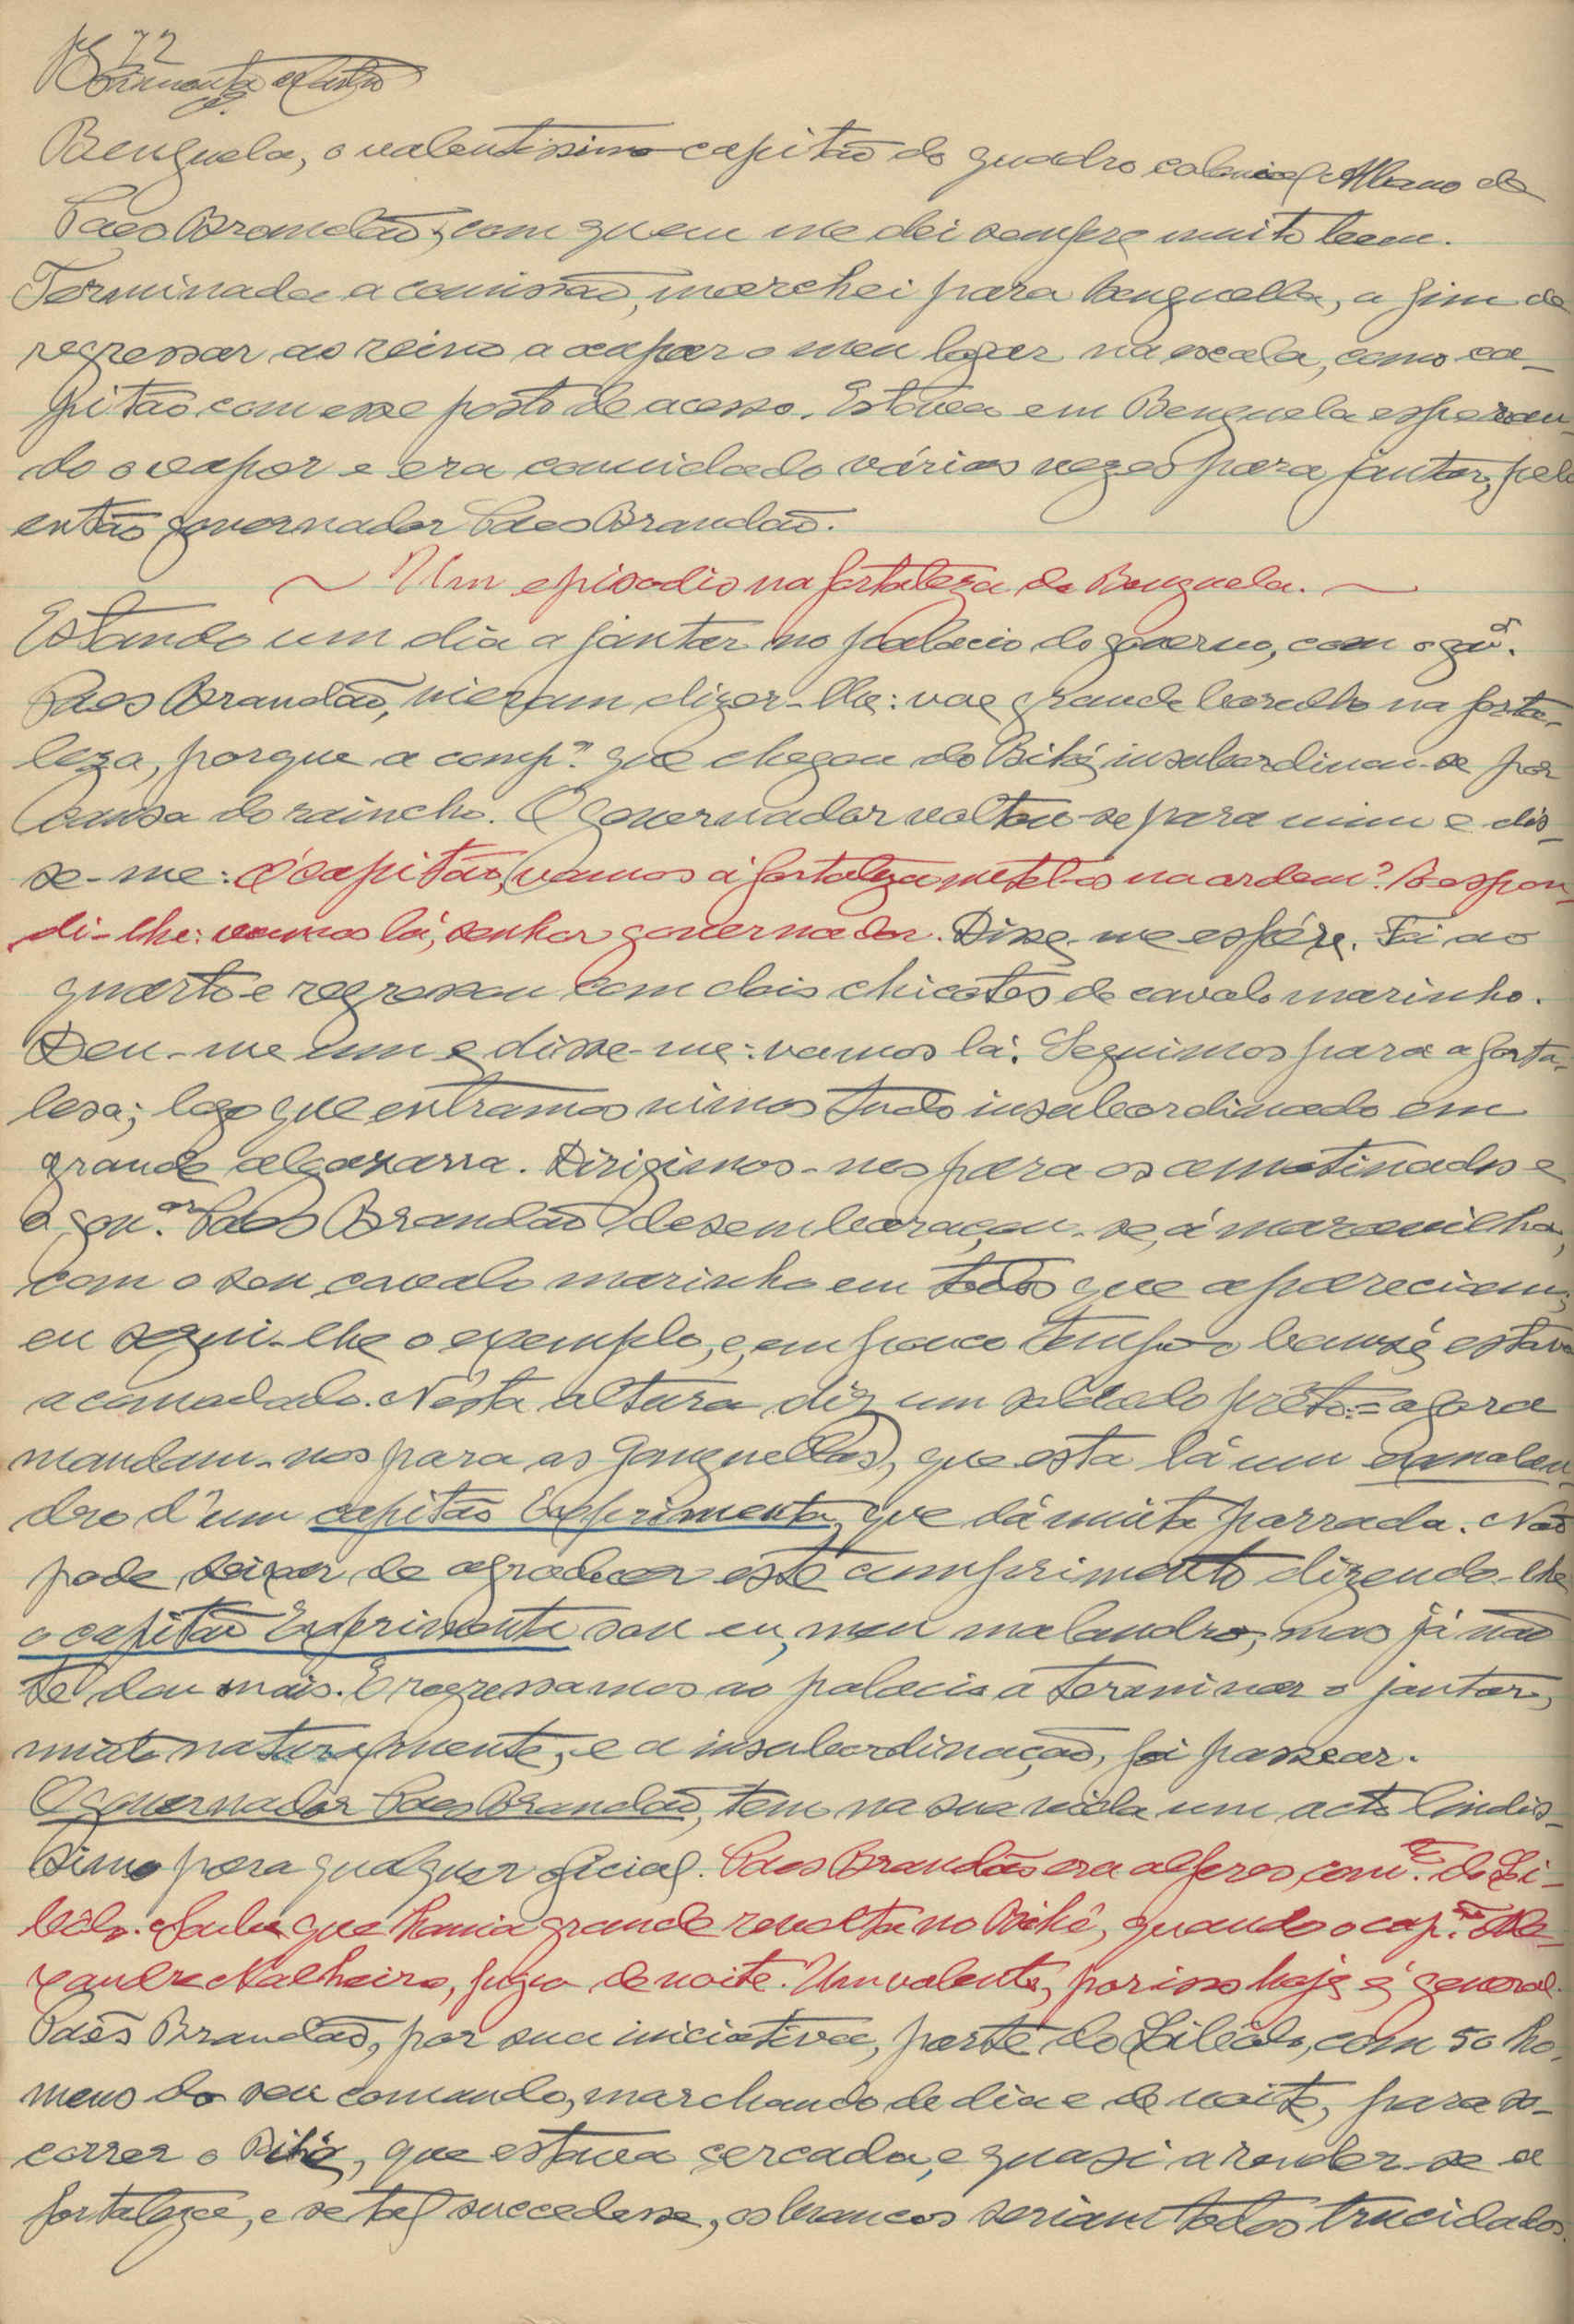 72
Benguela, o valentissimo capitão do quadro colonial Albano de
Paes Brandão, com quem me dei sempre muito bem.
Terminada a comissão, marchei para Benguella, a fim de
regressar ao reino a ocupar o meu logar na escala, como ca-
pitão com esse posto de acesso. Estava em Benguela esperan-
do o vapor e era convidado várias vezes para jantar, pelo
então governador Paes Brandão.
~ Um episodio na fortaleza de Benguela. ~
Estando um dia a jantar no palacio do governo, com o gov.or
Paes Brandão, vieram dizer-lhe: vae grande barulho na forta-
leza, porque a comp.ª que chegou do Bihé insubordinou-se por
causa do raincho. O governador voltou-se para mim e dis-
se-me: O' capitão, vamos á fortaleza metel-os na ordem? Respon-
di-lhe: vamos lá, senhor governador. Disse-me espére. Foi ao
quarto e regressou com dois chicotes de cavalo marinho.
Deu-me um e disse-me: vamos lá. Seguimos para a forta-
lesa; logo que entramos vimos tudo insubordinado em
grande algazarra. Dirigimos-nos para os amotinados e
o gov.or Paes Brandão desembaraçou-se, á maravilha,
com o seu cavalo marinho em todos que apareciam;
eu segui-lhe o exemplo, e, em pouco tempo o banzé estava
acomodado. Nésta altura diz um soldado prêto:= agora
mandam-nos para as Ganguellas, que esta lá um
dro d'um capitão Exprimenta, que dá muita parrada. Não
pode deixar de agradecer este cumprimento dizendo-lhe
o capitão Exprimenta sou eu, meu malandro, mas já não
te dou mais. E regressamos ao palacio a terminar o jantar,
muito naturalmente, e a insubordinação, foi passear.
O governador Paes Brandão, tem na sua vida um acto lindis-
simo para qualquer oficial. Paes Brandão era alferes, com.te do Li-
bôlo. Soube que havia grande revolta no Bihé, quando o cap.tão Ale-
xandre Malheiro, fugio de noite. Um valente, por isso hoje é general.
Paes Brandão, por sua iniciativa, parte do Libôlo, com 50 ho-
mens do seu comando, marchando de dia e de noite, para so-
correr o Bihé, que estava cercado, e quasi a render-se a
fortaleza, e se tal succedesse, os brancos seriam todos trucidados.